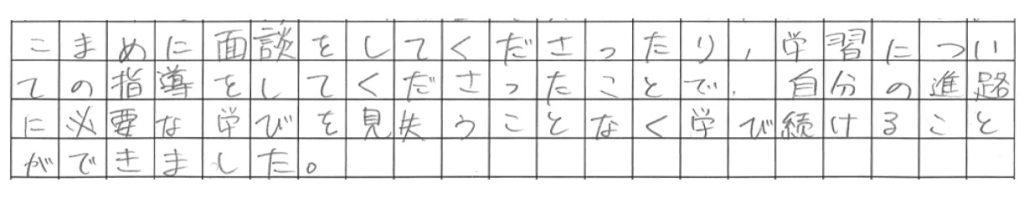 こまめに面談をしてくださったり,学習につい
ての指導をしてくださったことで,自分の進路
に必要な学びを見失うことなく学び続けること
ができました。